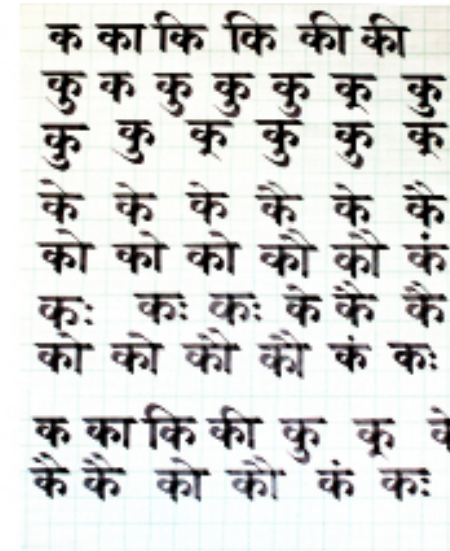 क का कि कि की की
कु क कु कु कु कू कु
कु कु कू कु कु कू
के के के कै के कै
को को को कौ कौ कं
कः कः कः के कै कै
को को कौ कौ कं कः
क का कि की कु कू के
कै कै को कौ कं कः